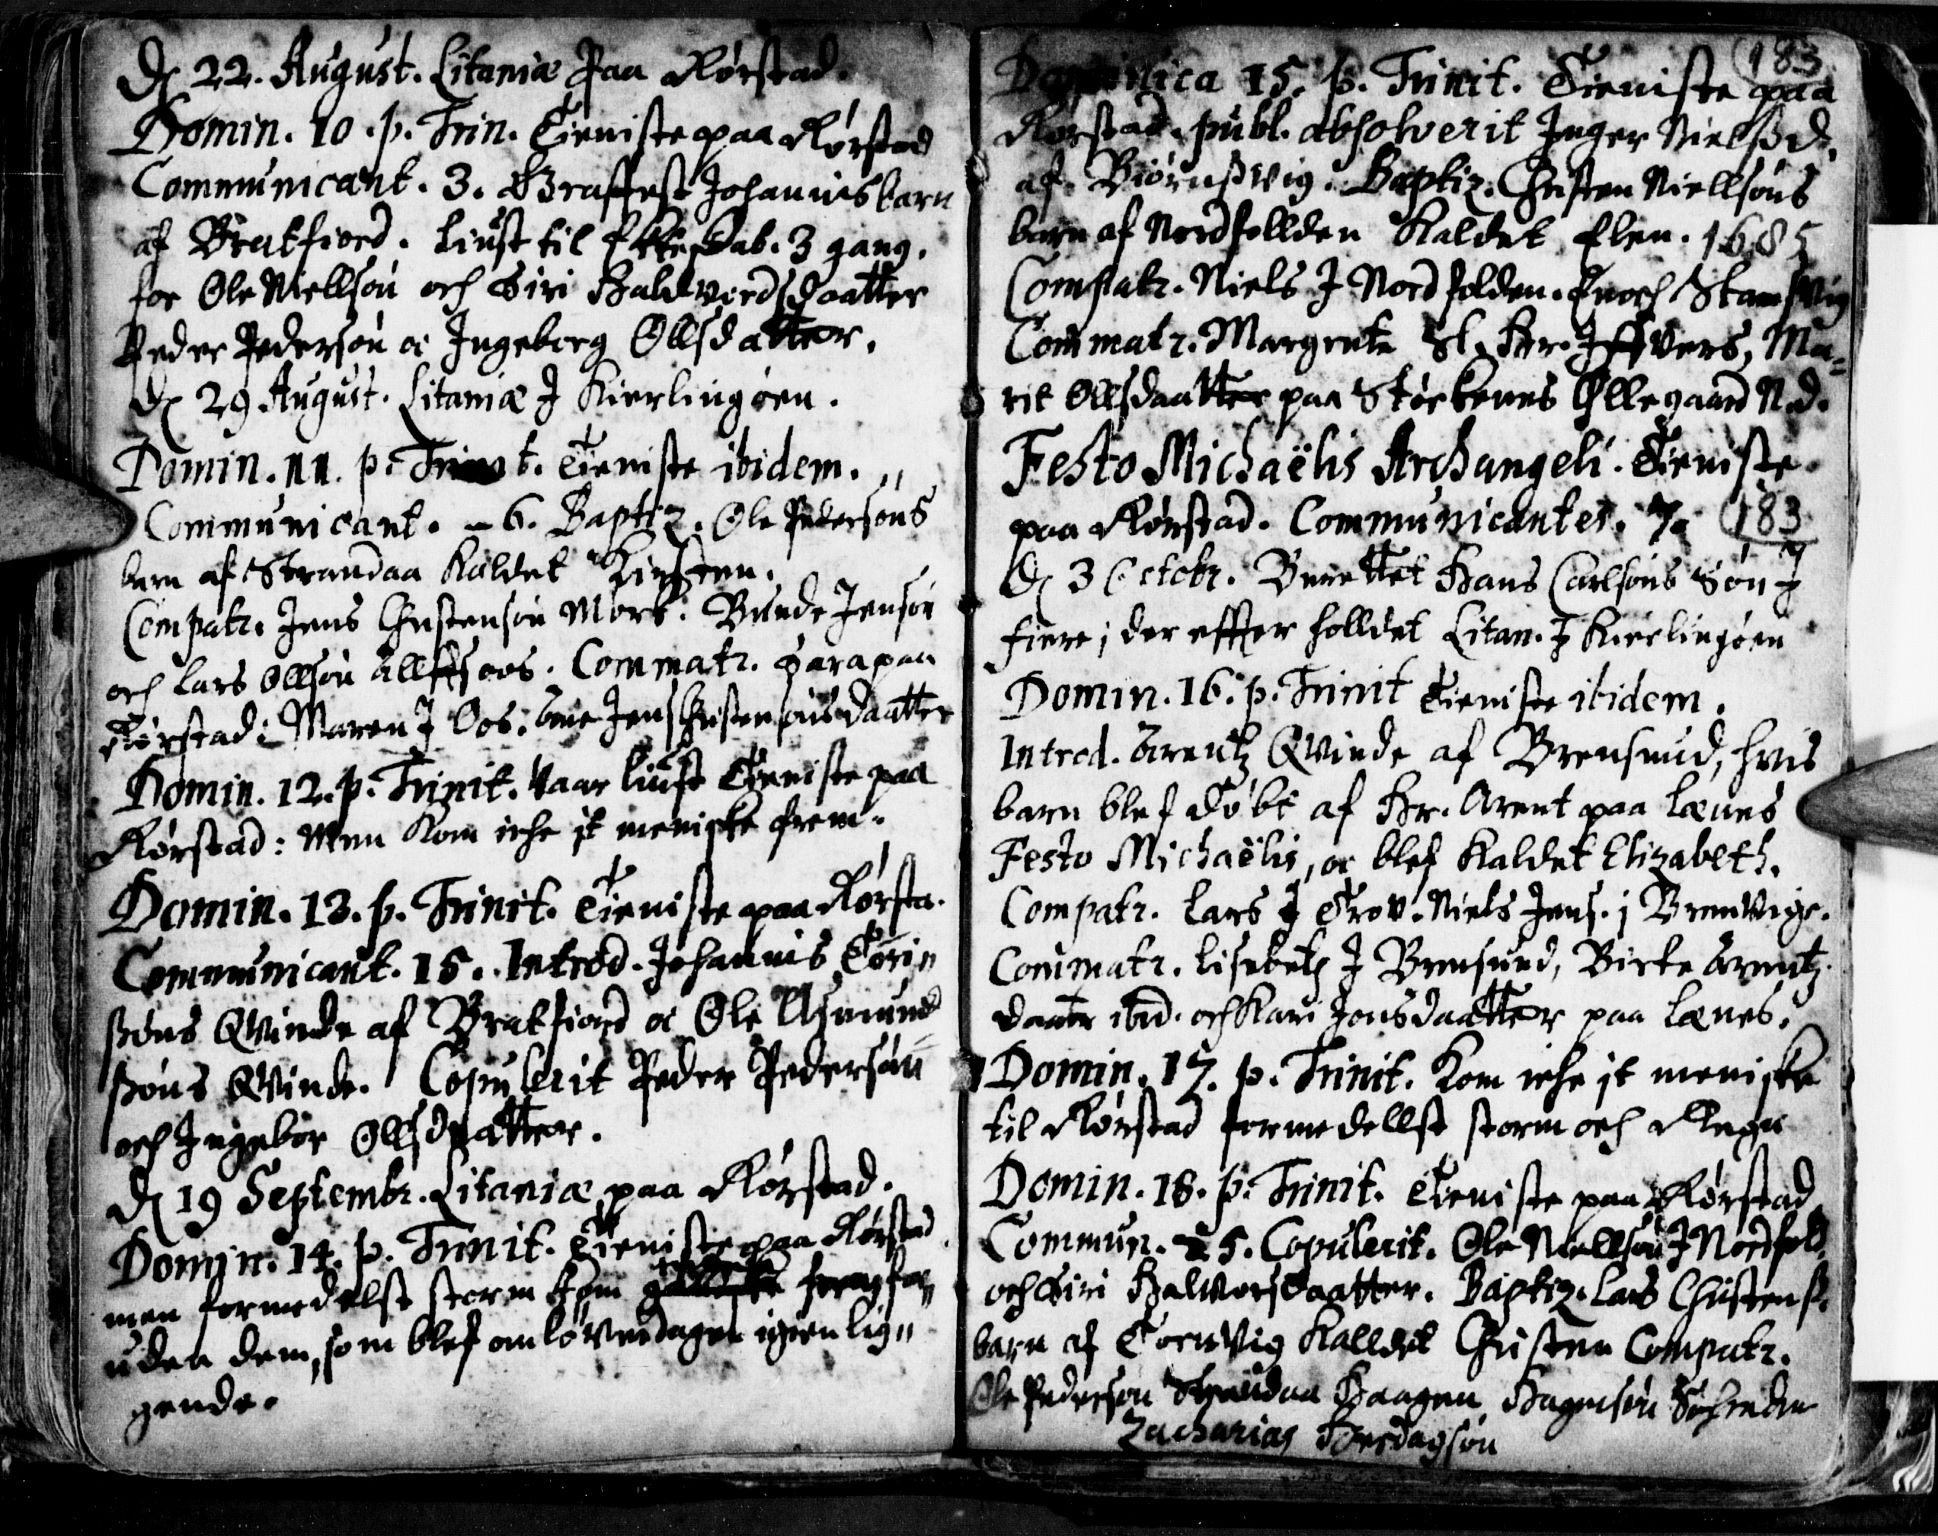 D. 22. August. Litaniæ paa Rørstad.
Domin. 10. p. Trin. Tieniste paa Rørstad
Communicant. 3. Graffest Johannis barn
af Bratfiord. Liust til Ekteskab. 3 gang.
for Ole Niellsøn och Siri Haldvordsdaatter
Peder Pedersøn oc Ingeborg Ollsdatter.
D. 29 August. Litaniæ J Kierlingøen.
Domin. 11. p. Trinit. Tieniste ibidem.
Communicant. 6. Baptiz. Ole Pedersøns
barn af Strandaa Kaldet Kirsten.
Compatr. Jens Christensøn Mørk. Bunde Jensøn
och Lars Ollsøn . Commatr. Sara paa
Rørstad: Maren J Oos. Jens Christensøns daatter
Domin. 12. p. Trinit. Vaar liust Tieniste paa
Rørstad: Men Kom iche it meniske frem.
Domin. 13. p. Trinit. Tieniste paa Rørsta.
Communicant. 15. Introd. Johannis Tøri„
ßøns Qvinde af Bratfiord oc Ole Asmund
ßøns Qvinde. Copulerit Peder Pedersøn
och Ingebor Ollsdaatter.
D. 19 Septembr. Litaniæ paa Rørstad.
Domin. 14. p. Trinit. Tieniste paa Rørstad
men formedelst storm kom
uden dem, som blef om løverdagen igien lig„
gende.
183
Dominica 15. p. Trinit. Tieniste paa
Rørstad. publ. absolverit Inger Nielßd.
af Biørnßvig. Baptiz. Christen Niellsøns
barn af Nordfollden Kaldet Elen. 1685
Compatr. Niels J Nordfolden. Enoch Stamsvig
Commatr. Margrete Sl. Hr. Iffvers, Ma=
rit Ollsdaatter paa Størkenes Ellegaard N.d.
Festo Michaëlis Archangeli. Tieniste
paa Rørstad. Communicantes. 7. 183
D. 3 Octobr. Berettet Hans Carlsøns Søn J
fiere; der effter holldet Litan. J Kierlingøen
Domin. 16. p. Trinit Tieniste ibidem.
Introd. Arentz Qvinde af Brensund, hvis
barn blef døbt af Hr. Arent paa Lænes
Festo Michaëlis, oc blef Kaldet Elizabeth.
Compatr. Lars J Trov. Niels Jens. i Brenvige.
Commatr. Lisebeth J Brensund, Birte Arentz
daatr ibid. och Kari Jonsdaatter paa Lænes.
Domin. 17. p. Trinit. Kom iche it meniske
til Rørstad formedellst storm och Regn
Domin. 18. p. Trinit. Tieniste paa Rørstad
Commun. 5. Copulerit. Ole Niellsøn J Nordfold
och Siri Halvorsdaatter. Baptiz. Lars Christenß.
barn af Tørvig Kalldet Christen Compatr.
Ole Pedersøn Strandaa Haagen Hagensøn
Zacharias Herdagsøn